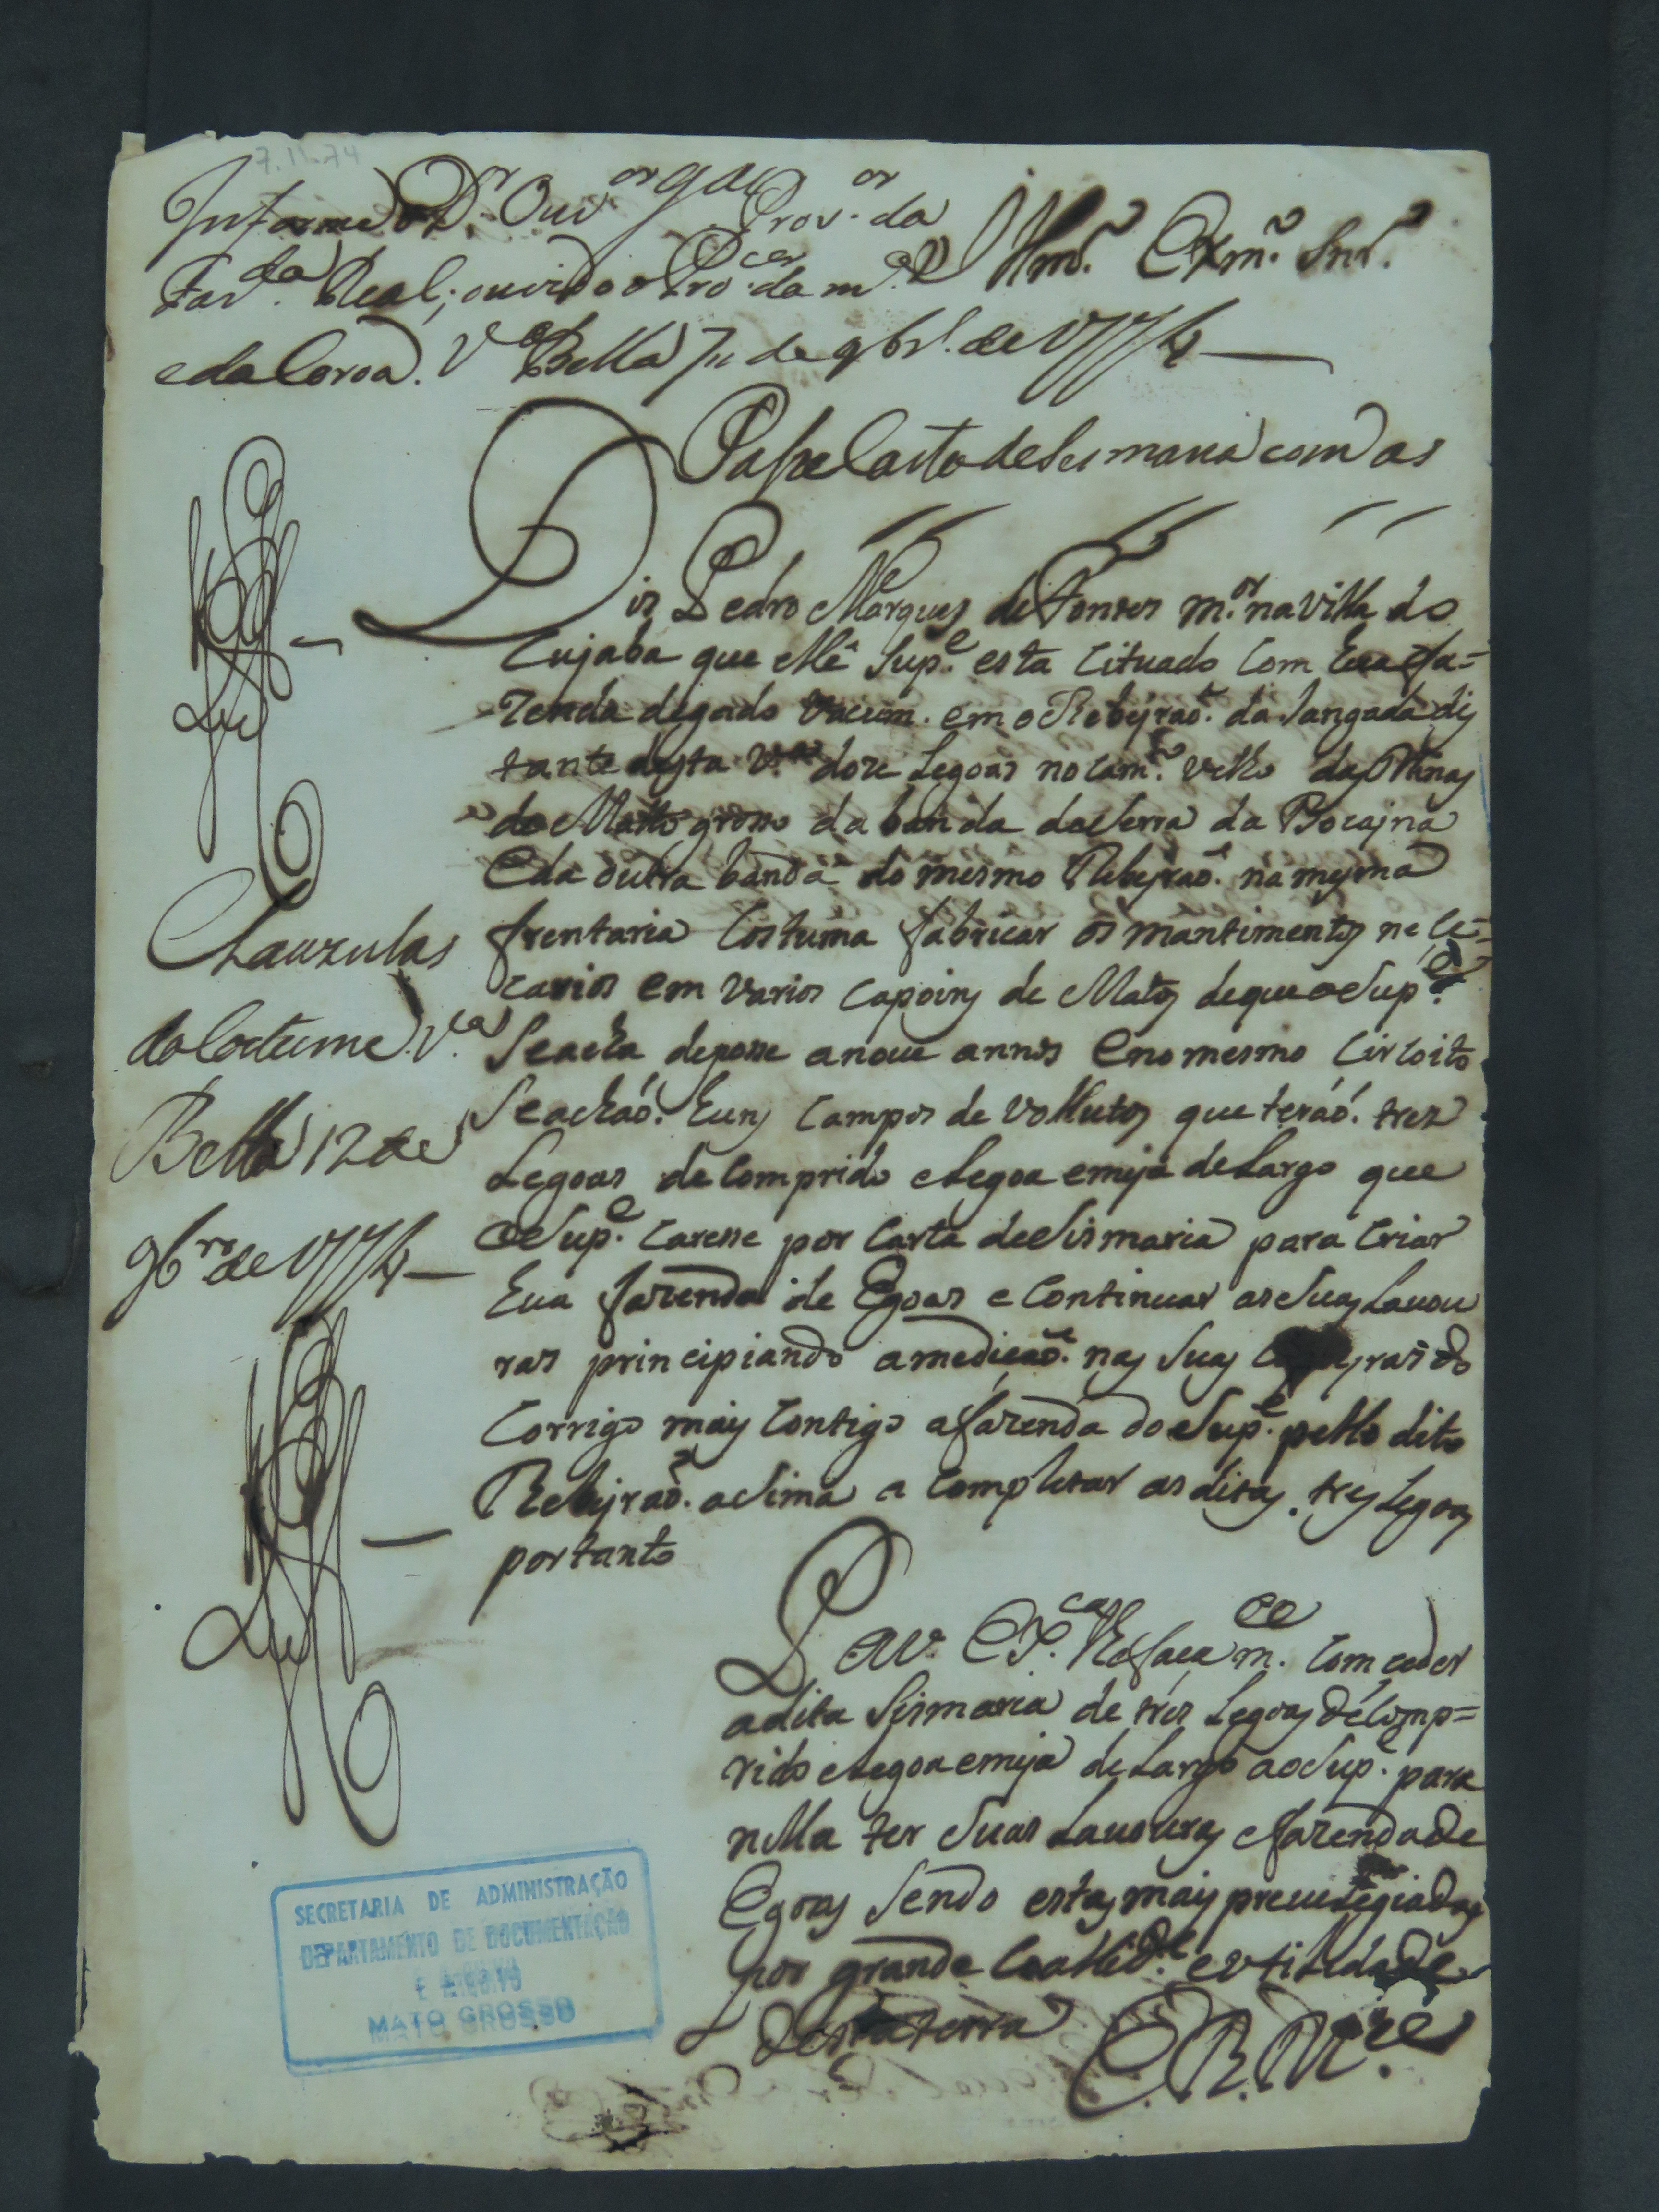 7.11.74
Informe o D.or Ouv.or g.al Prov.or da
Faz.da Real, ouvido o Pro.cor da m.a
e da Coroa. V.a Bella 7 de 9br.o de 1774
Illmo. Exmo. Snr.
Passe Carta de Sesmaria com as
Clauzulas
do Costume. V.a
Bella 12 de
9br.o de 1774
Dis Pedro Marques de Fontes m.or na Villa do
Cujaba que elle Sup.e esta Cituado Com hua fa=
zenda de gado Vacum. em o Ribejraõ. da Jangada dis
tante desta V.a doze Legoas no Cam.o velho das Minas
do Matto grosso da banda da Serra da Bocajna
E da outra banda do mesmo Ribejraõ. na mesma
frentaria Costuma fabricar os mantimentos nese=
carios em varios Capoins de Matos de que o Sup.e
Se acha de posse a noue annos E no mesmo Circoito
Se achaõ. huns Campos devollutos que teraõ. tres
Legoas de Comprido e Legoa e meja de Largo que
o Sup.e Caresse por Carta de Sismaria para Criar
hua fazenda de Egoas e Continuar as Suas Lauou
ras principiando a mediçaõ. nas Suas do
Corrigo mais Contigo a fazenda do Sup.e pello dito
Ribejraõ. a Sima a Completar as ditas. tres Legoas
portanto
P. a V. Ex.ca lhe faça m.ce Comceder
a dita Sismaria de tres Legoas de Comp=
rido e Legoa e meja de Largo ao Sup.e para
nella ter Suas Lauouras e fazenda de
Egoas Sendo estas mais preuelegiadas
por grande e vtilidade
desta terra
E. R. M.ce
SECRETARIA DE ADMINISTRAÇÃO
DEPARTAMENTO DE DOCUMENTAÇÃO
E ARQUIVO
MATO GROSSO